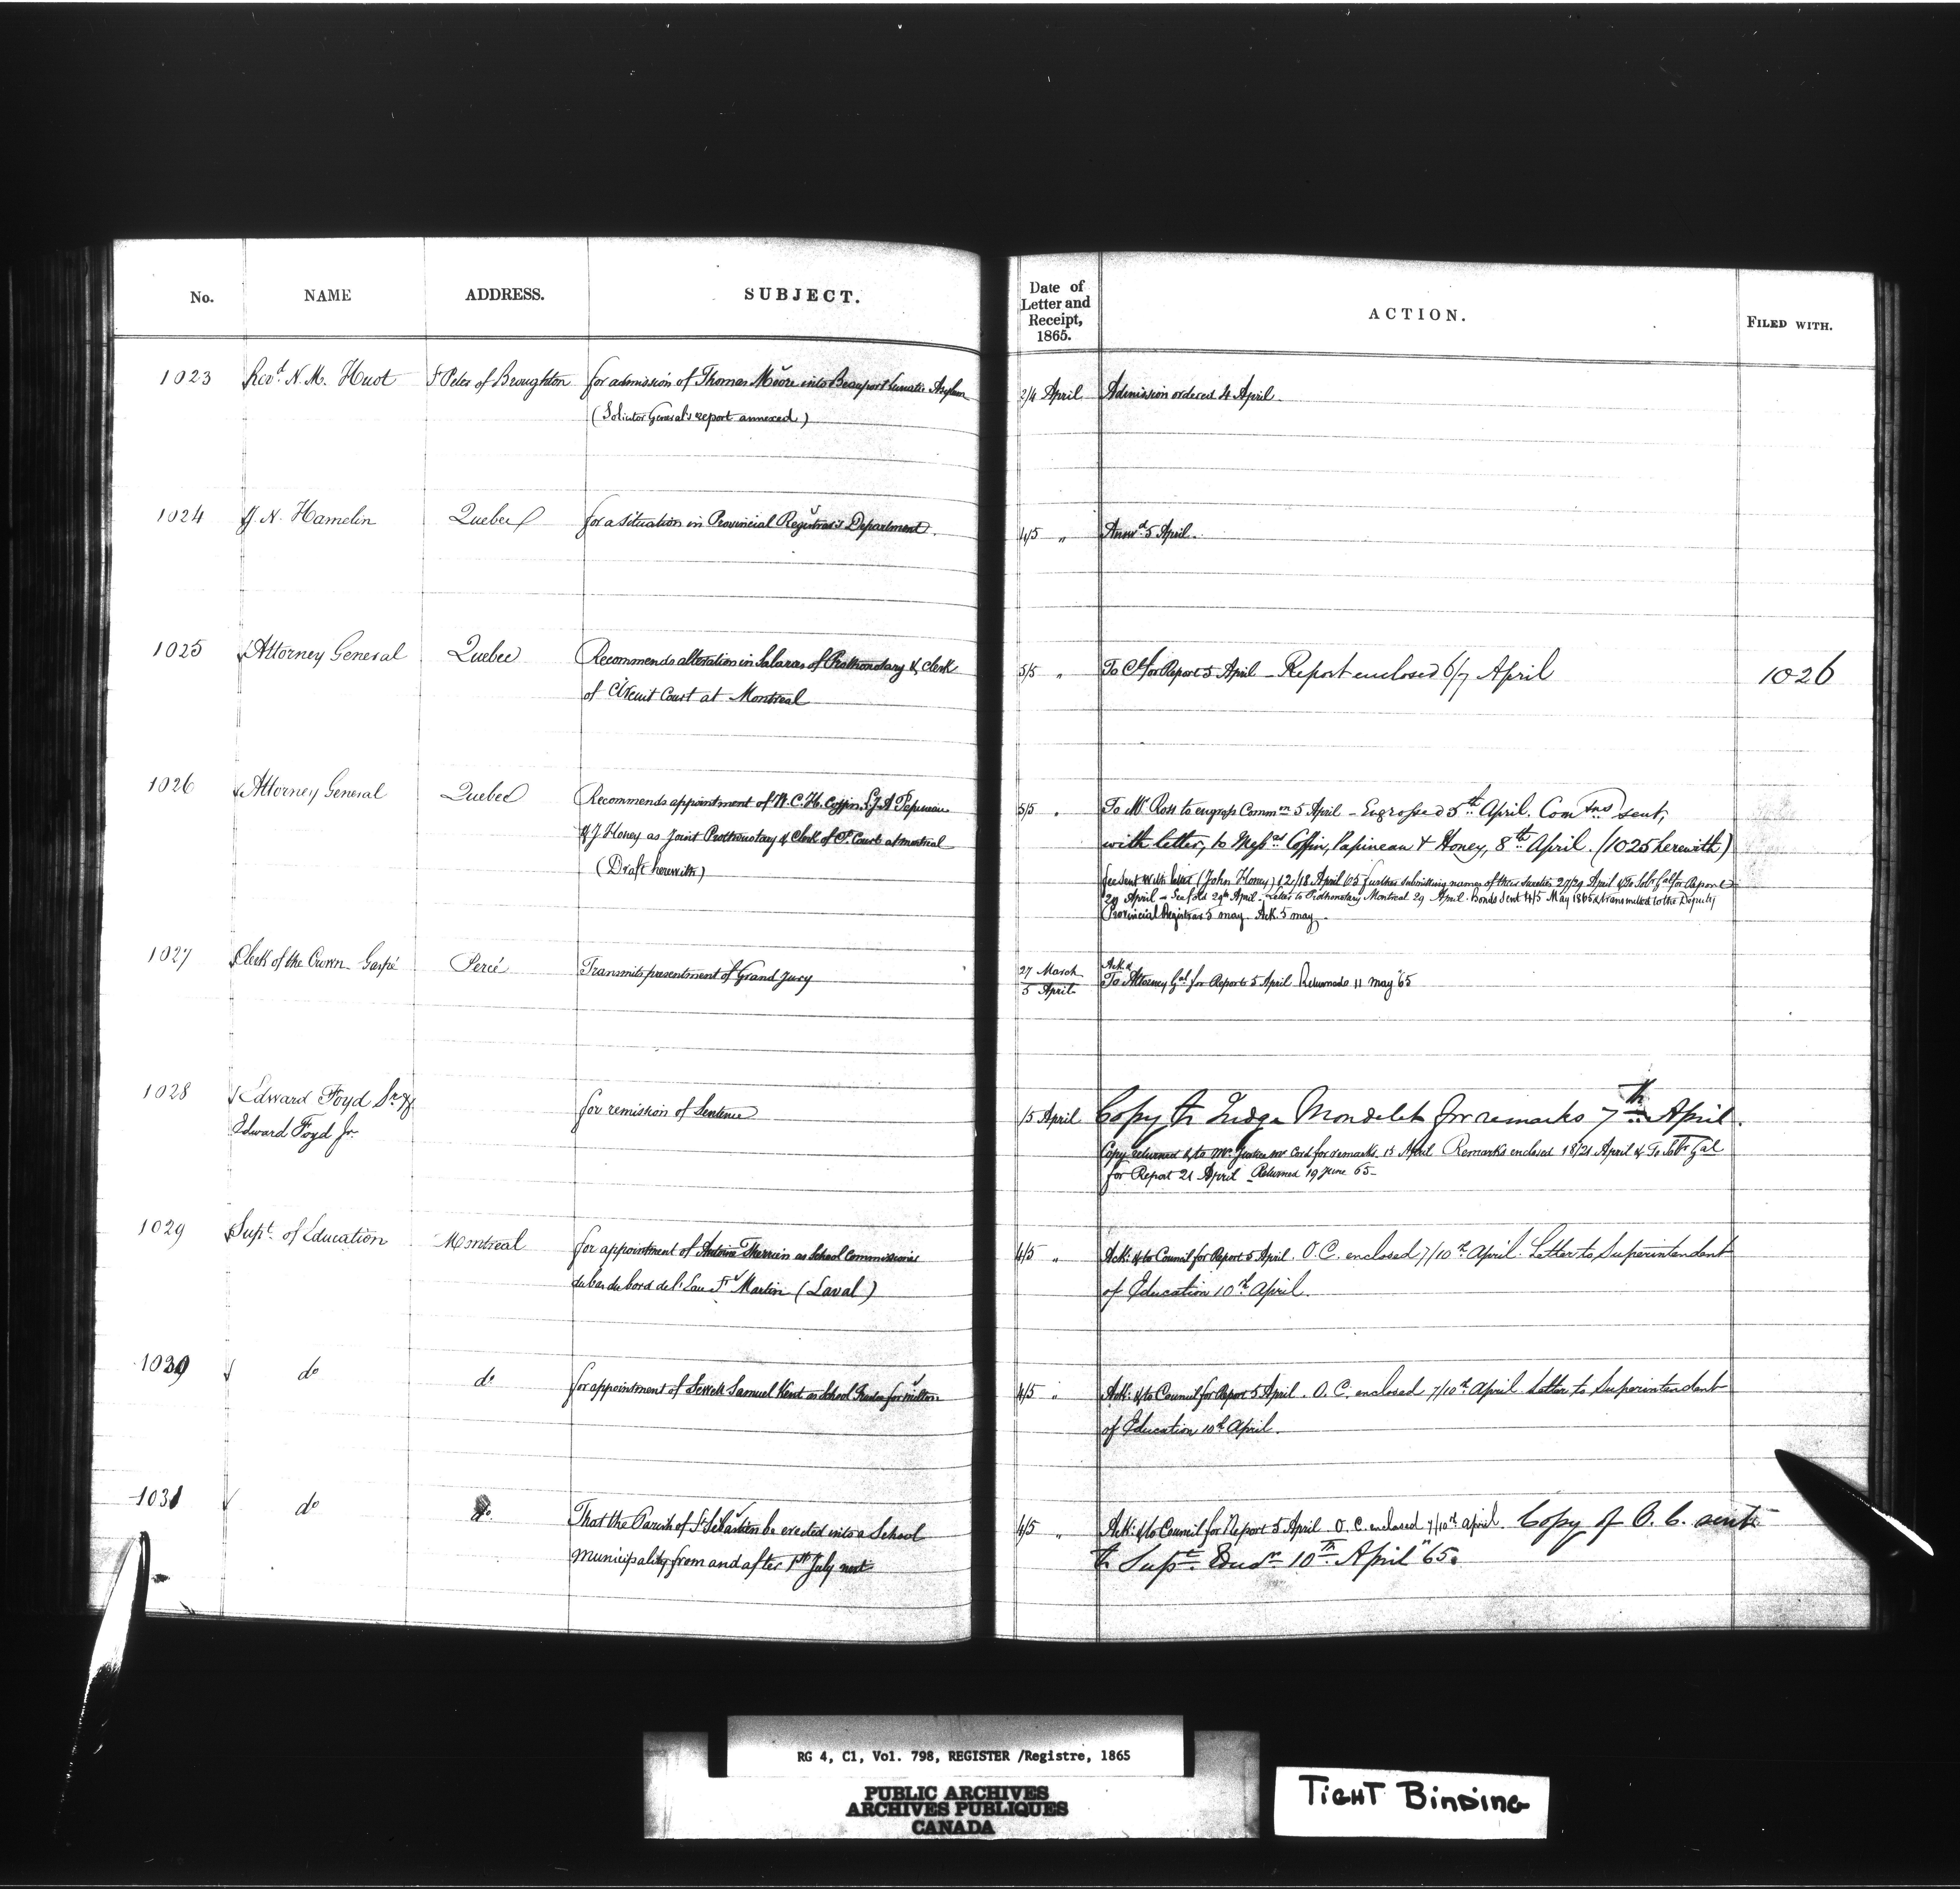 No. NAME ADDRESS. SUBJECT. Date of Letter and Receipt, 1865. ACTION. FILED WITH.
1023 Revd N. M. Huot St Peter of Broughton for admission of Thomas Moore into Beauport Lunatic Asylum 3/4 April Admission ordered 4 April.
(Solicitor General's report annexed)
1024 J. N. Hamelin Quebec for a situation in Provincial Registrar's Department. 4/5 " Answd 5 April.
1025 Attorney General Quebec Recommends alteration in Salaries of Prothonotary & Clerk 5/5 " To Cl for Report 5 April – Report enclosed 6/7 April 1026
of Circuit Court at Montreal
1026 Attorney General Quebec Recommends appointment of W. C. H. Coffin, L. J. A Papineau 5/5 " To Mr Ross to engross Commn 5 April – Engrossed 5th April. Comsns sent,
& J Honey as Joint Prothonotary & Clerk of Ct. Court at Montreal with letter, to Messrs Coffin, Papineau & Honey, 8th April. (1025 herewith)
(Draft herewith)
fee sent with letter (John Honey) 12/18 April 65 further submitting names of their sureties 27/29 April & To Solr Gal for Report
29 April – 29th April – Letter to Prothonotary Montreal 29 April. Bonds sent 4/5 May 1865 & transmitted to the Deputy
Provincial Registrar 5 may. Ack. 5 may.
1027 Clerk of the Crown Gaspé Percé Transmits presentment of Grand Jury 27 March 5 April Ack &
To Attorney Gal for Report 5 April Returned 11 may '65
1028 Edward Foyd Sr & for remission of Sentence /5 April Copy to Judge Mondelet for remarks 7th April.
Edward Foyd Jr.
Copy returned & to Mr Justice Mc Cord for remarks 15 April Remarks enclosed 18/21 April & To Solr Gal
for Report 21 April – Returned 19 June 65 –
1029 Supt of Education Montreal for appointment of Antoine Therrien as School Commissioner 4/5 " Ack: & to Council for Report 5 April. O.C. enclosed 7/10th April. Letter to Superintendent
du bas du bord de l'Eau St Martin (Laval) of Education 10th April.
1030 do do for appointment of Samuel Kent as School Trustee for Milton 4/5 " Ack: & to Council for Report 5 April. O.C. enclosed 7/10th April. Letter to Superintendent
of Education 10th April.
1031 do do That the Parish of St Sébastien be erected into a School 4/5 " Ack: & to Council for Report 5 April O.C. enclosed 7/10th April. Copy of O.C. sent
Municipality from and after 1st July next to Supt. Educn 10th April "65.
RG 4, C1, Vol. 798, REGISTER /Registre, 1865
PUBLIC ARCHIVES
ARCHIVES PUBLIQUES
CANADA
TIGHT BINDING